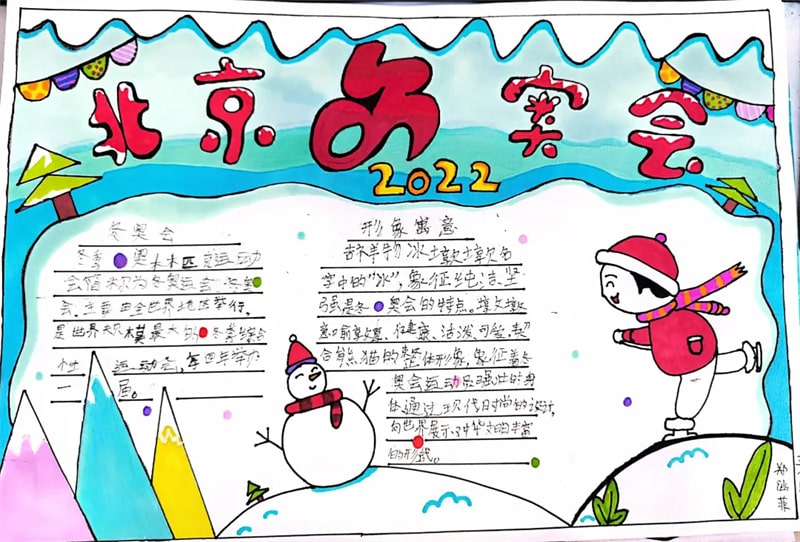 北京冬奥会
2022
冬奥会
冬季奥林匹克运动
会简称为冬奥运会.冬奥
会.主要由全世界地区举行.
是世界规模最大的冬季综合
性运动会,每四年举办
一届。
形象寓意
吉祥物冰墩墩墩名
字中的“冰”,象征纯洁坚
强是冬奥会的特点。墩墩
意敦厚、健康、活泼、可爱,契
合熊猫的整体形象,象征着冬
奥会运动员强壮的身
体通过现代时尚的设计,
向世界展示中华文的丰富
的形式。